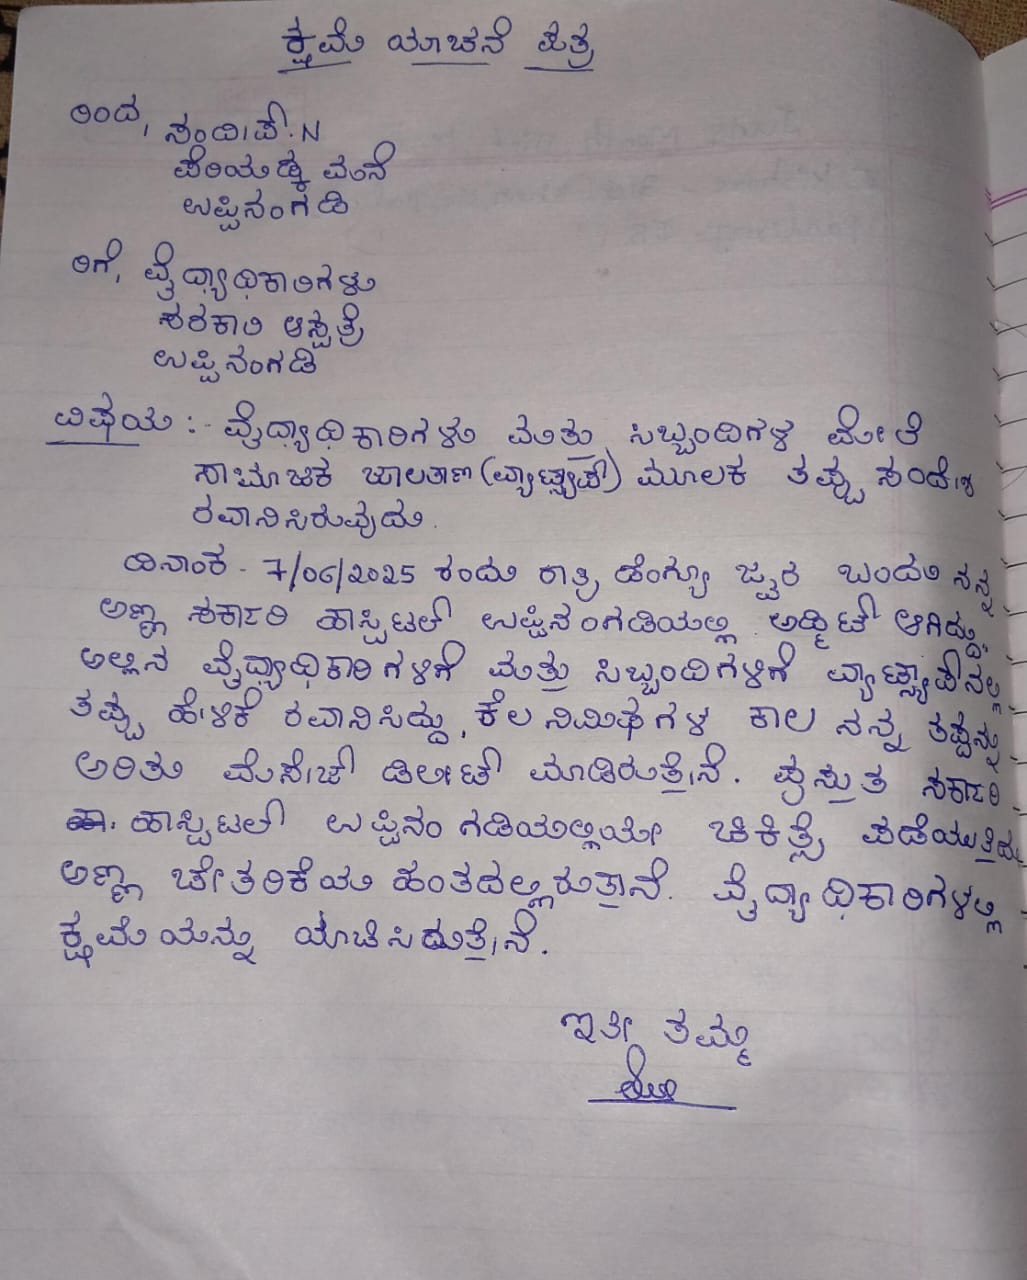 ಕ್ಷಮೆ ಯಾಚನೆ ಪತ್ರ
ರಿಂದ, ಸಂದೀಪ್. N
ಪೆರಿಯಡ್ಕ ಮನೆ
ಉಪ್ಪಿನಂಗಡಿ
ರಿಗೆ, ವೈದ್ಯಾಧಿಕಾರಿಗಳು
ಸರಕಾರಿ ಆಸ್ಪತ್ರೆ
ಉಪ್ಪಿನಂಗಡಿ
ವಿಷಯ :- ವೈದ್ಯಾಧಿಕಾರಿಗಳು ಮತ್ತು ಸಿಬ್ಬಂದಿಗಳ ಮೇಲೆ
ಸಾಮಾಜಿಕ ಜಾಲತಾಣ (ವ್ಯಾಟ್ಸ್ಯಾಪ್) ಮೂಲಕ ತಪ್ಪು ಸಂದೇಶ
ರವಾನಿಸಿರುವುದು.
ದಿನಾಂಕ - 7/06/2025 ರಂದು ರಾತ್ರಿ ಡೆಂಗ್ಯೂ ಜ್ವರ ಬಂದು ನನ್ನ
ಅಣ್ಣ ಸರ್ಕಾರಿ ಹಾಸ್ಪಿಟಲ್ ಉಪ್ಪಿನಂಗಡಿಯಲ್ಲಿ ಅಡ್ಮಿಟ್ ಆಗಿದ್ದು.
ಅಲ್ಲಿನ ವೈದ್ಯಾಧಿಕಾರಿಗಳಿಗೆ ಮತ್ತು ಸಿಬ್ಬಂದಿಗಳಿಗೆ ವ್ಯಾಟ್ಸ್ಯಾಪ್‌ನಲ್ಲಿ
ತಪ್ಪು ಹೇಳಿಕೆ ರವಾನಿಸಿದ್ದು, ಕೆಲ ನಿಮಿಷಗಳ ಕಾಲ ನನ್ನ ತಪ್ಪನ್ನು
ಅರಿತು ಮೆಸೇಜ್ ಡಿಲೀಟ್ ಮಾಡಿರುತ್ತೇನೆ. ಪ್ರಸ್ತುತ ಸರ್ಕಾರಿ
ಹಾಸ್ಪಿಟಲ್ ಉಪ್ಪಿನಂಗಡಿಯಲ್ಲಿಯೇ ಚಿಕಿತ್ಸೆ ಪಡೆಯುತ್ತಿದ್ದು
ಅಣ್ಣ ಚೇತರಿಕೆಯ ಹಂತದಲ್ಲಿರುತ್ತಾನೆ. ವೈದ್ಯಾಧಿಕಾರಿಗಳಲ್ಲಿ
ಕ್ಷಮೆಯನ್ನು ಯಾಚಿಸಿರುತ್ತೇನೆ.
ಇತೀ ತಮ್ಮ